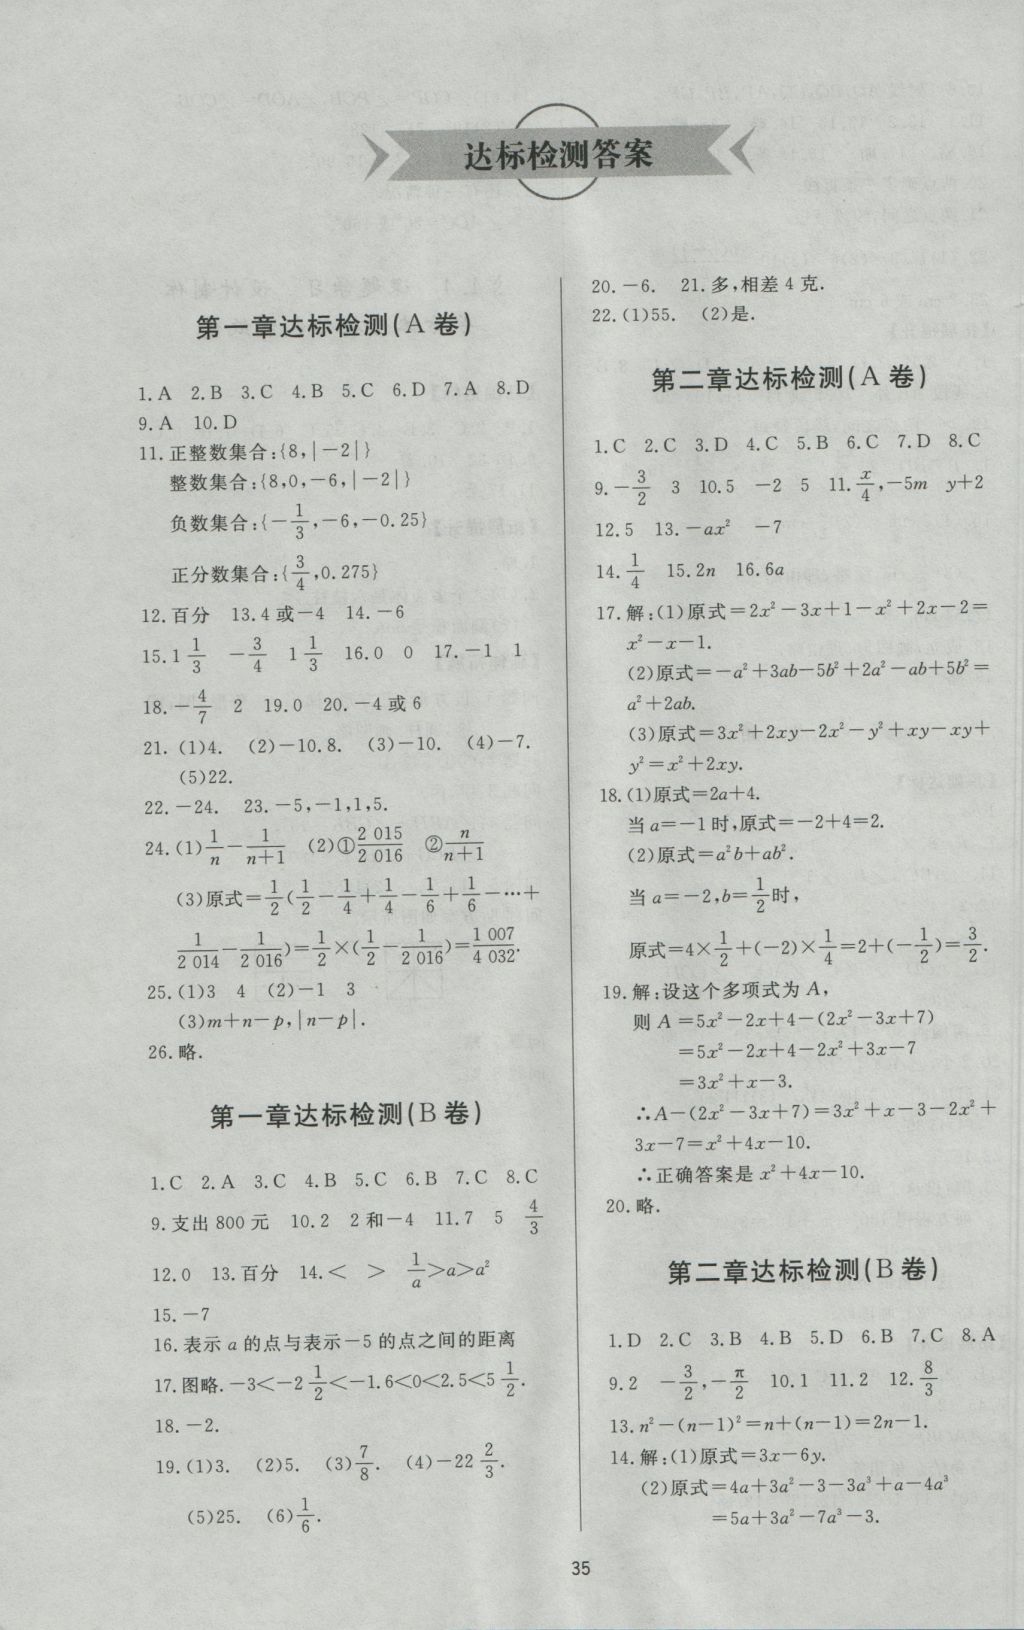 达标检测答案
第一章达标检测(A卷)
1.A 2.B 3.C 4.B 5.C 6.D 7.A 8.D
9.A 10.D
11.正整数集合:{8,|-2|}
整数集合:{8,0,-6,|-2|}
负数集合:{-1/3,-6,-0.25}
正分数集合:{3/4,0.275}
12.百分 13.4或-4 14.-6
15.1 1/3 -3/4 1 1/3 16.0 0 17.-1 1
18.-4/7 2 19.0 20.-4或6
21.(1)4. (2)-10.8. (3)-10. (4)-7.
(5)22.
22.-24. 23.-5,-1,1,5.
24.(1)1/n-1/(n+1) (2)①2 015/2 016 ②n/(n+1)
(3)原式=1/2(1/2-1/4+1/4-1/6+1/6-…+
1/2 014-1/2 016)=1/2×(1/2-1/2 016)=1 007/4 032.
25.(1)3 4 (2)-1 3
(3)m+n-p,|n-p|.
26.略.
第一章达标检测(B卷)
1.C 2.A 3.C 4.B 5.C 6.B 7.C 8.C
9.支出800元 10.2 2和-4 11.7 5 4/3
12.0 13.百分 14.< > 1/a>a>a²
15.-7
16.表示a的点与表示-5的点之间的距离
17.图略.-3<-2 1/2<-1.6<0<2.5<5 1/2.
18.-2.
19.(1)3. (2)5. (3)7/8. (4)-22 2/3.
(5)25. (6)1/6.
20.-6. 21.多,相差4克.
22.(1)55. (2)是.
第二章达标检测(A卷)
1.C 2.C 3.D 4.C 5.B 6.C 7.D 8.C
9.-3/2 3 10.5 -2 5 11.x/4,-5m y+2
12.5 13.-ax² -7
14.1/4 15.2n 16.6a
17.解:(1)原式=2x²-3x+1-x²+2x-2=
x²-x-1.
(2)原式=-a²+3ab-5b²+2a²-ab+5b²=
a²+2ab.
(3)原式=3x²+2xy-2x²-y²+xy-xy+
y²=x²+2xy.
18.(1)原式=2a+4.
当a=-1时,原式=-2+4=2.
(2)原式=a²b+ab².
当a=-2,b=1/2时,
原式=4×1/2+(-2)×1/4=2+(-1/2)=3/2.
19.解:设这个多项式为A,
则A=5x²-2x+4-(2x²-3x+7)
=5x²-2x+4-2x²+3x-7
=3x²+x-3.
∴A-(2x²-3x+7)=3x²+x-3-2x²+
3x-7=x²+4x-10.
∴正确答案是x²+4x-10.
20.略.
第二章达标检测(B卷)
1.D 2.C 3.B 4.B 5.D 6.B 7.C 8.A
9.2 -3/2,-π/2 10.1 11.2 12.8/3
13.n²-(n-1)²=n+(n-1)=2n-1.
14.解:(1)原式=3x-6y.
(2)原式=4a+3a²-3-3a³+a-4a³
=5a+3a²-7a³-3.
35